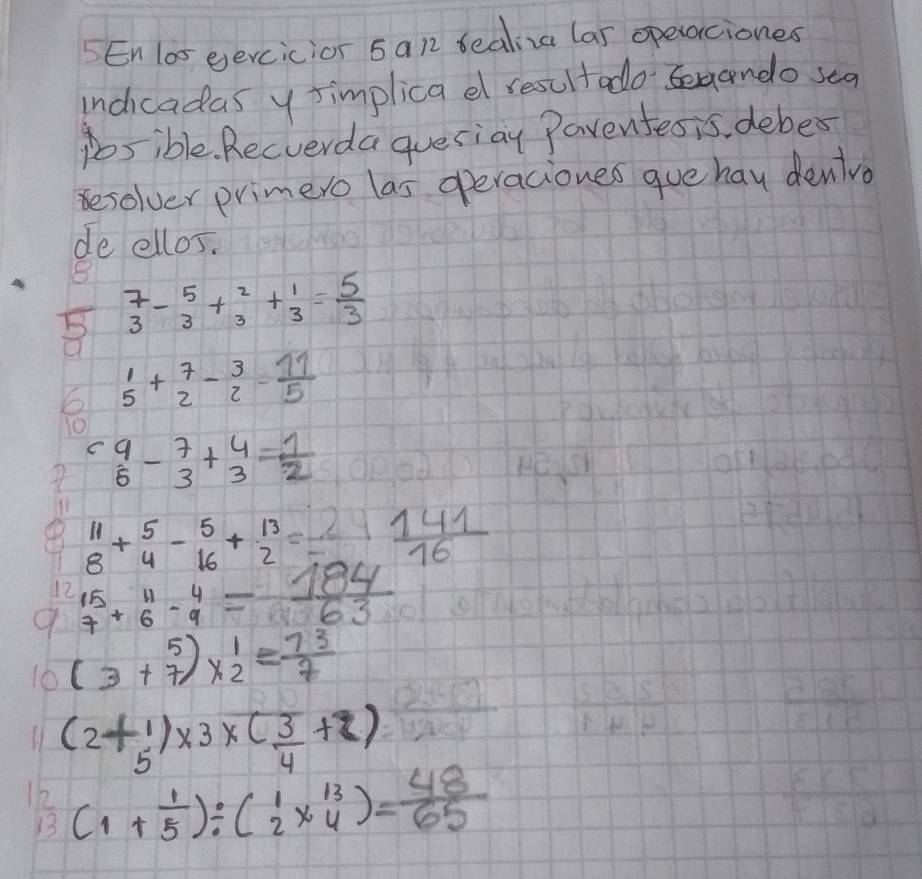 5 En los ejercicios 5 a 12 realiza las operaciones
indicadas y simplica el resultado cuando sea
posible. Recuerda que si ay Parentesis, debes
resolver primero las operaciones que hay dentro
de ellos.
5 7/3 - 5/3 + 2/3 + 1/3 = 5/3
6 1/5 + 7/2 - 3/2 = 11/5
7 9/6 - 7/3 + 4/3 = 1/2
8 11/8 + 5/4 - 5/16 + 13/2 = 141/16
9 15/7 + 11/6 - 4/9 = 184/63
10 (3 + 5/7) x 1/2 = 13/7
11 (2 + 1/5) x 3 x (3/4 + 2)
12 (1 + 1/5) ÷ (1/2 x 13/4) = 48/65